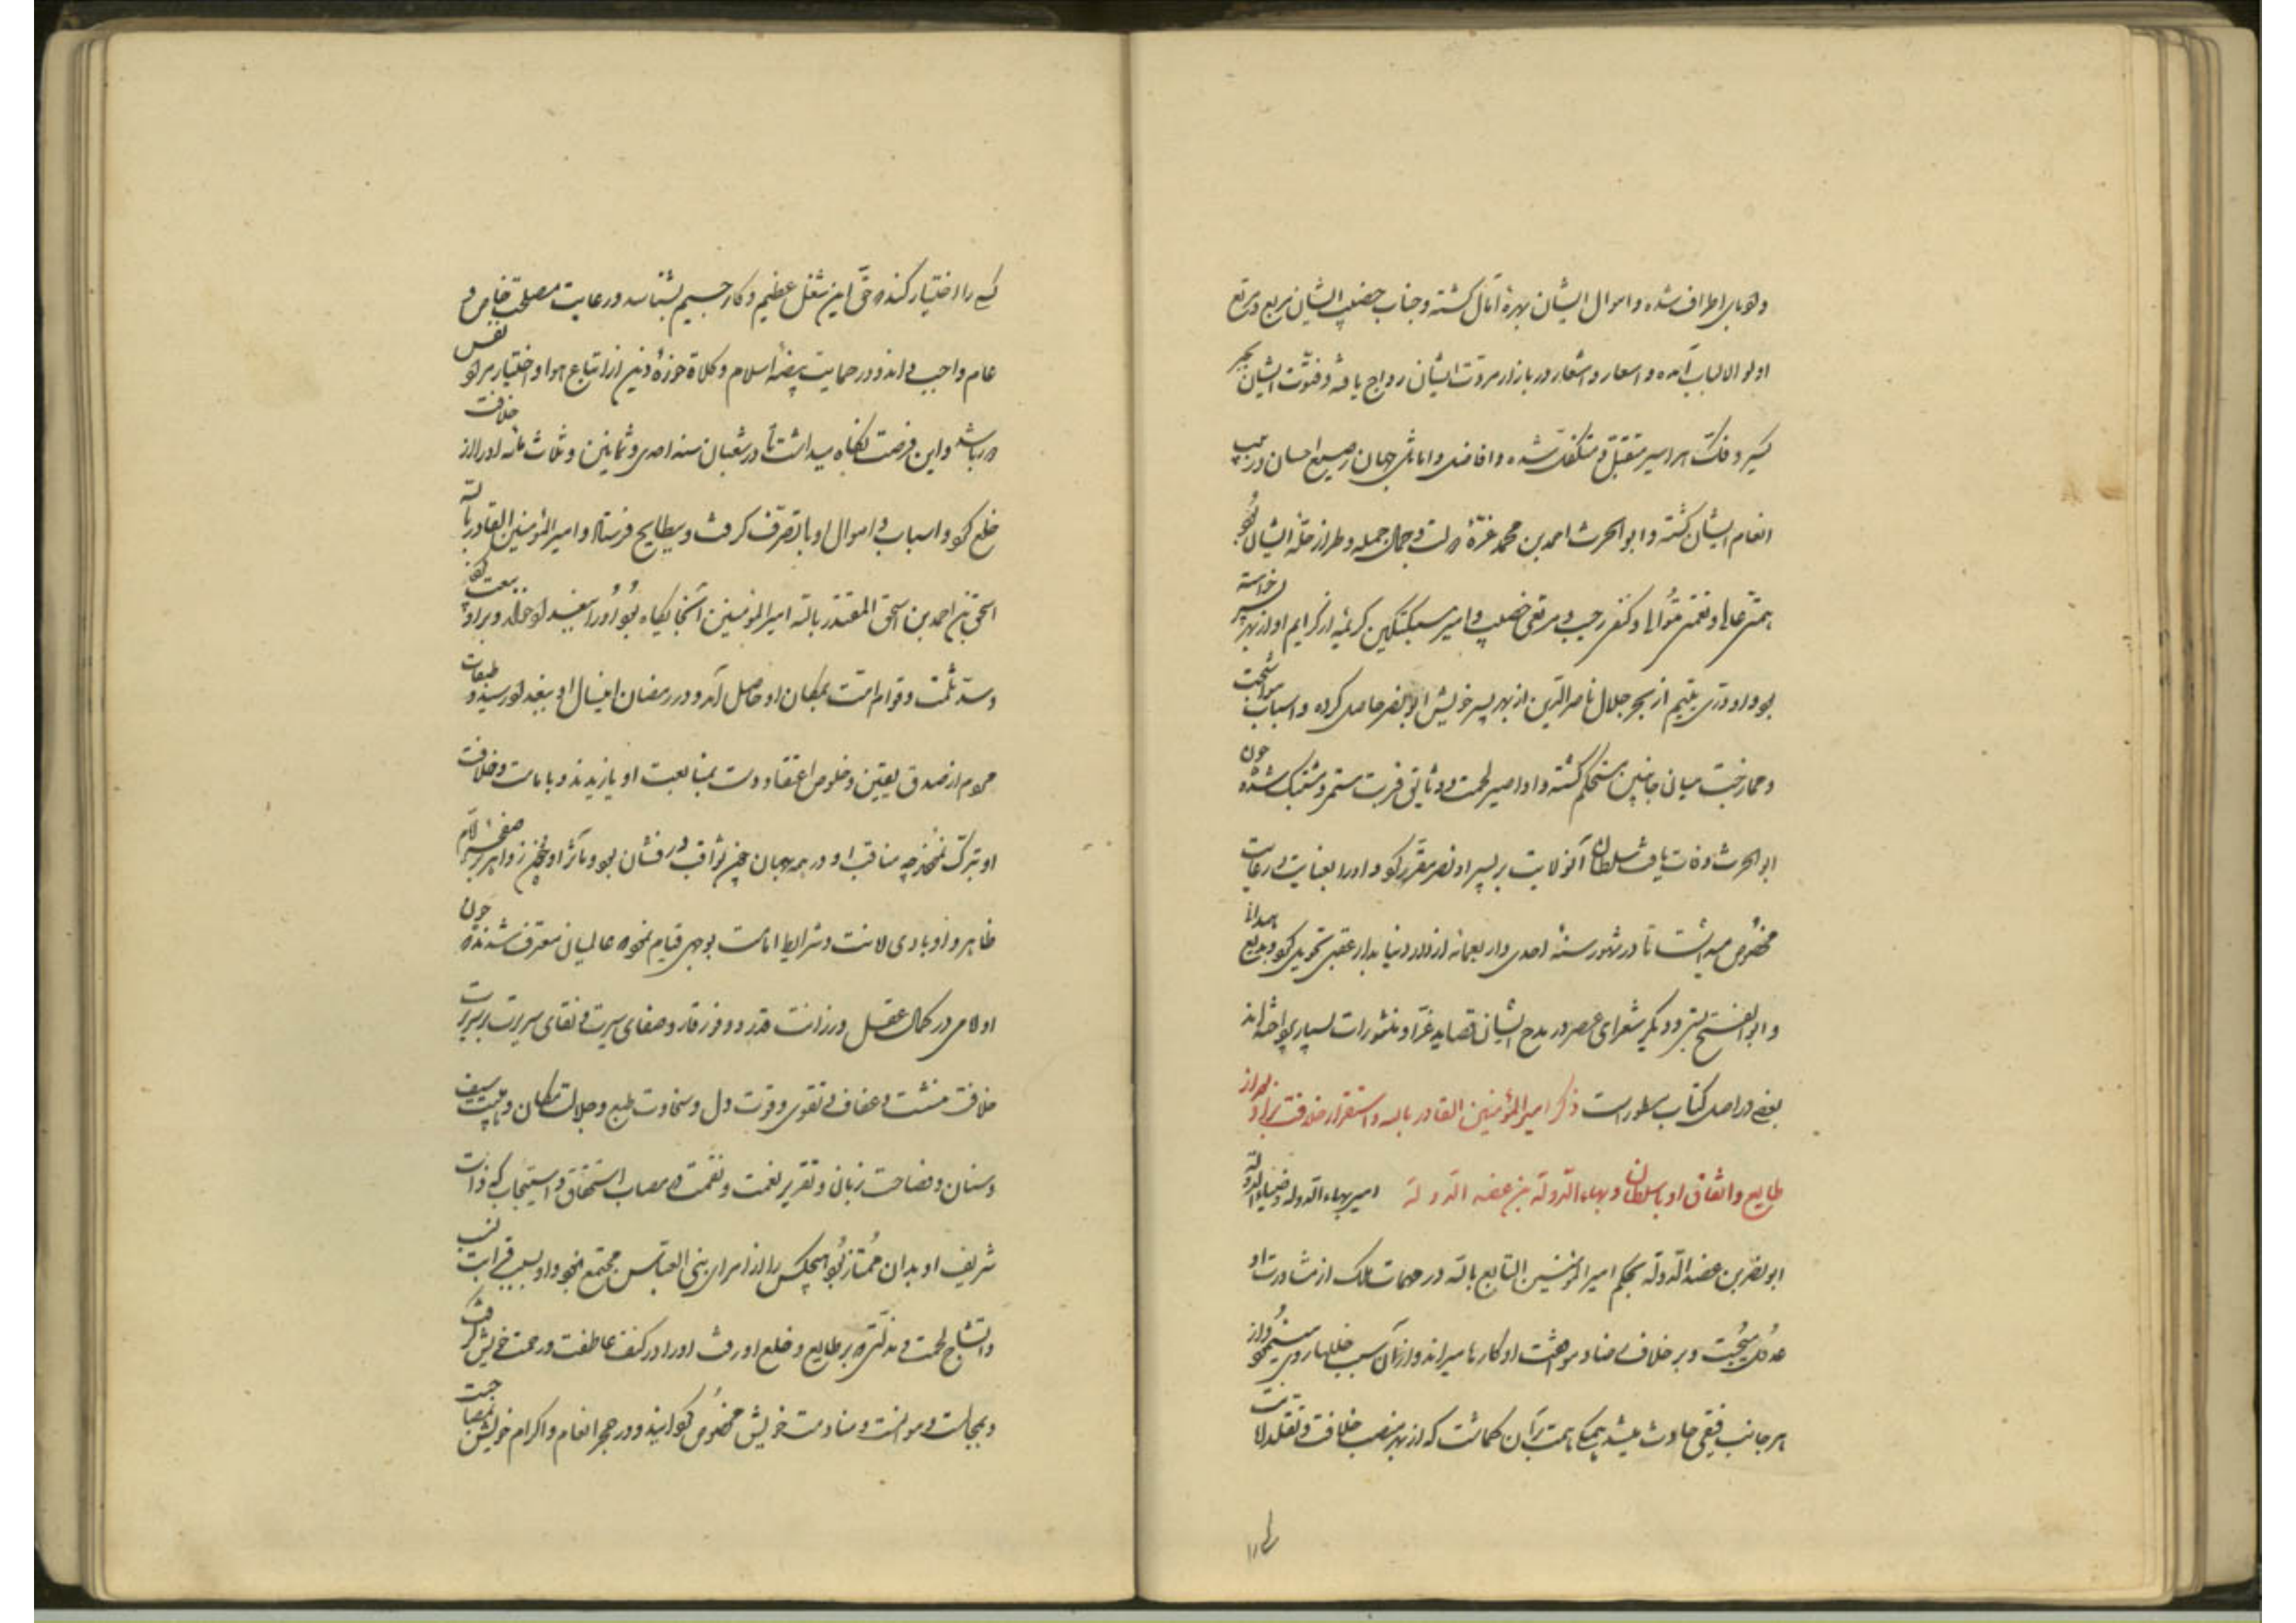 و لهوبای اطراف شده و اموال ایشان بهرهٔ آمال کشته و جناب خصیب ایشان مربع و مرتع
اولو الالباب آمده و اسعار و اشعار در بازار مروت ایشان رواج یافته و فتوّت ایشان بجبر
کسیر و فک هر اسیر متقبل و متکفل شده و افاضل و اماثل جهان رضیع احسان و ربیب
انعام ایشان کشته و ابو الحرث احمد بن محمد غرّهٔ دولت و جمال جمله و طراز حلهٔ ایشان بود
همتی عالی و نعمتی متوالی و کنفی رحیب و مرتعی خصیب و امیر سبکتکین کریمهٔ از کرایم او از بهر پسر خواسته
بود و او درّی یتیم از بحر جلال ناصر الدین از بهر پسر خویش ابو نصر حاصل کرده و اسباب مواشجت
و ممازجت میان جانبین مستحکم کشته و اواصر لحمت و وثایق قربت مستمر و مشتبک شده چون
ابو الحرث وفات یافت سلطان آن ولایت بر پسر او نصر مقرر کرد و او را بعنایت و رعایت
مخصوص میداشت تا در شهور سنهٔ احدی و اربعمائه از دار دنیا بدار عقبی تحویل کرد و بدیع همدانی
و ابو الفتح بستی و دیکر شعرای عصر در مدح ایشان قصاید غرّا و منثورات بسیار پرداخته اند
بعضی در اصل کتاب مسطور است ذکر امیر المؤمنین القادر بالله و استقرار خلافت بر او بعد از
طایع و اتفاق او با سلطان و بهاء الدوله بن عضد الدولة امیر بهاء الدوله و ضیاء الملة
ابو نصر بن عضد الدوله بحکم امیر المؤمنین الطایع بالله در مهمات ملک از مشاورت او
عدول میجست و بر خلاف رضا و موافقت او کارها میراند و از آن سبب خللها روی مینمود و از
هر جانب فتقی حادث میشد بهمکی همت بر آن کماشت که از بهر منصب خلافت و تقلد ولا
کسی را
کسی را اختیار کند که حق این شغل عظیم و کار جسیم بشناسد و رعایت مصلحت خاص و
عام واجب داند و در حمایت بیضهٔ اسلام و کلاءة حوزهٔ دین از اتباع هوا و اختیار مراد نفس
دور باشد و این فرصت نکاه میداشت تا در شعبان سنه احدی و ثمانین و ثلاث مائه او را از خلافت
خلع کرد و اسباب و اموال او با تصرف کرفت و ببطایح فرستاد و امیر المؤمنین القادر بالله
اسحق بن احمد بن اسحق المقتدر بالله امیر المؤمنین آنجایکاه بود او را ببغداد خواند و بر او بیعت کرد
و سد ثلمت و قوام امت بمکان او حاصل آمد و در رمضان این سال او ببغداد رسید و طبقات
مردم از صدق یقین و خلوص اعتقاد دست بمبایعت او یازیدند و بامامت و خلافت
او تبرک نمودند چه مناقب او در همه جهان چون ثواقب درفشان بود و مآثر او چون زواهر بر صفحه ایام
ظاهر و او بادای امانت و شرایط امامت بوجهی قیام نمود که عالمیان معترف شدند که چون
اولامی در کمال عقل و رزانت قدر و وفور وقار و صفای سیرت و نقای سریرت بر سریر
خلافت ننشست و عفاف و تقوی و قوت دل و سخاوت طبع و جلالت مکان و هیبت سیف
و سنان و فصاحت زبان و تقریر نعمت و نقمت در مصاب استحقاق و استیجاب که ذات
شریف او بدان ممتاز بود هیچکس را از امرای بنی العباس مجتمع نبود و او بسبب قرابت نسب
و اتشاج لحمت و مذلتی که بر طایع و خلع او رفت او را در کنف عاطفت و رحمت خویش کرفت
و بمجالست و موانست و منادمت خویش مخصوص کردانید و در حجر انعام و اکرام خویش بمصاحبت